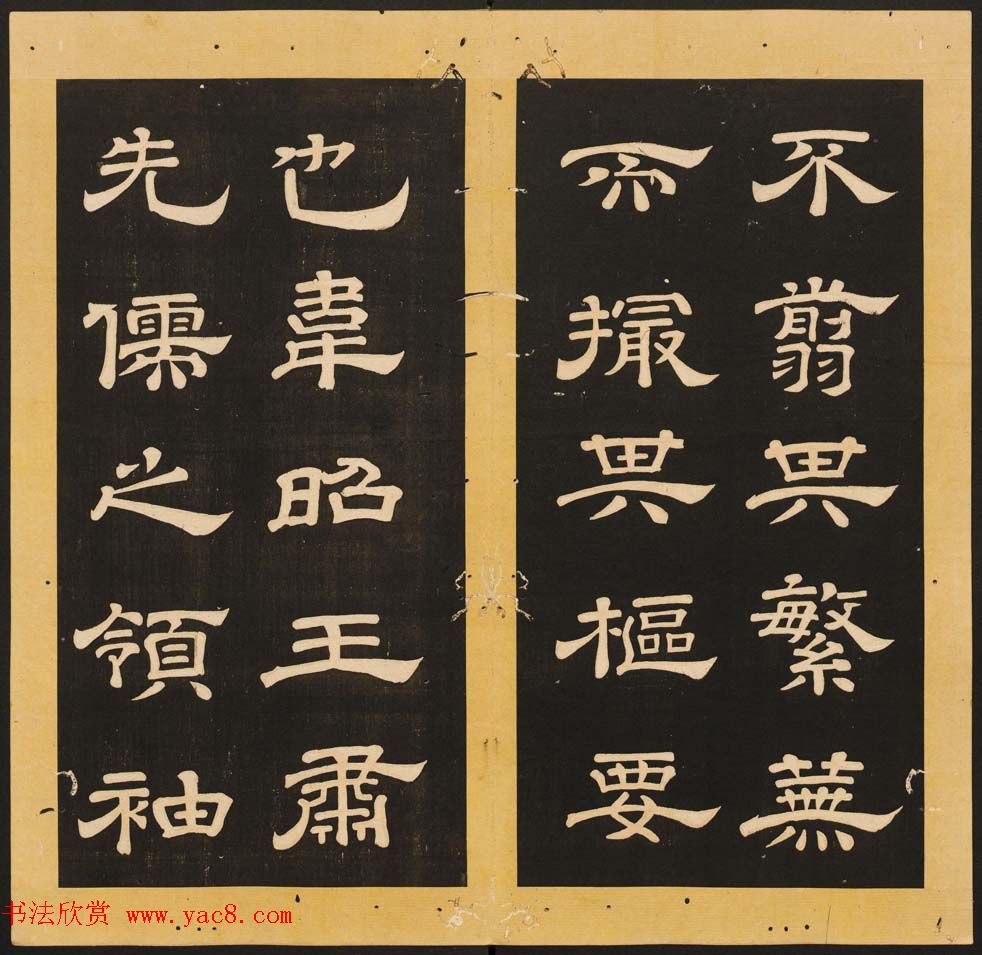 不翦其繁蕪
而撮其樞要
也韋昭王肅
先儒之領袖
书法欣赏 www.yac8.com